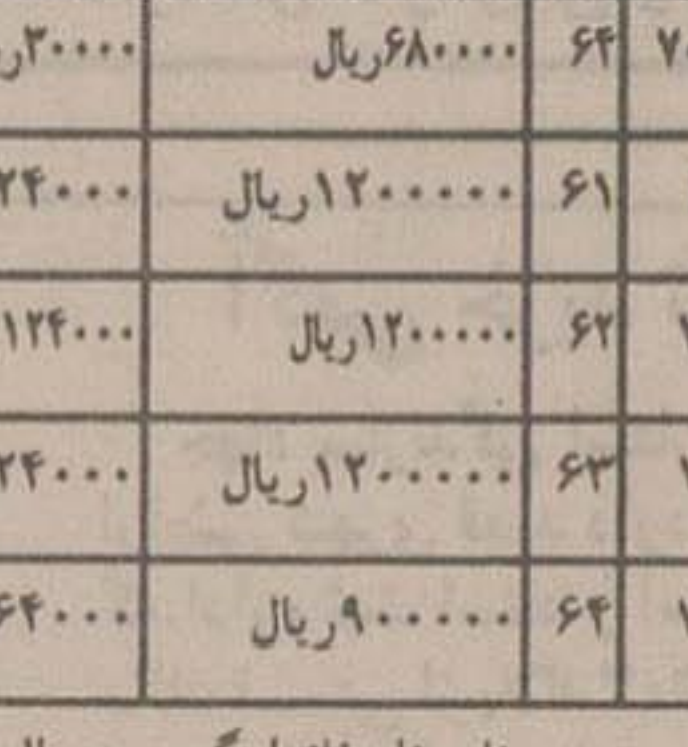 ۶۴ ۶۸۰۰۰۰ریال ۳۰۰۰۰ر
۶۱ ۱۲۰۰۰۰۰ریال ۲۴۰۰۰
۶۲ ۱۲۰۰۰۰۰ریال ۱۲۴۰۰۰
۶۳ ۱۲۰۰۰۰۰ریال ۲۴۰۰۰
۶۴ ۹۰۰۰۰۰ریال ۶۴۰۰۰